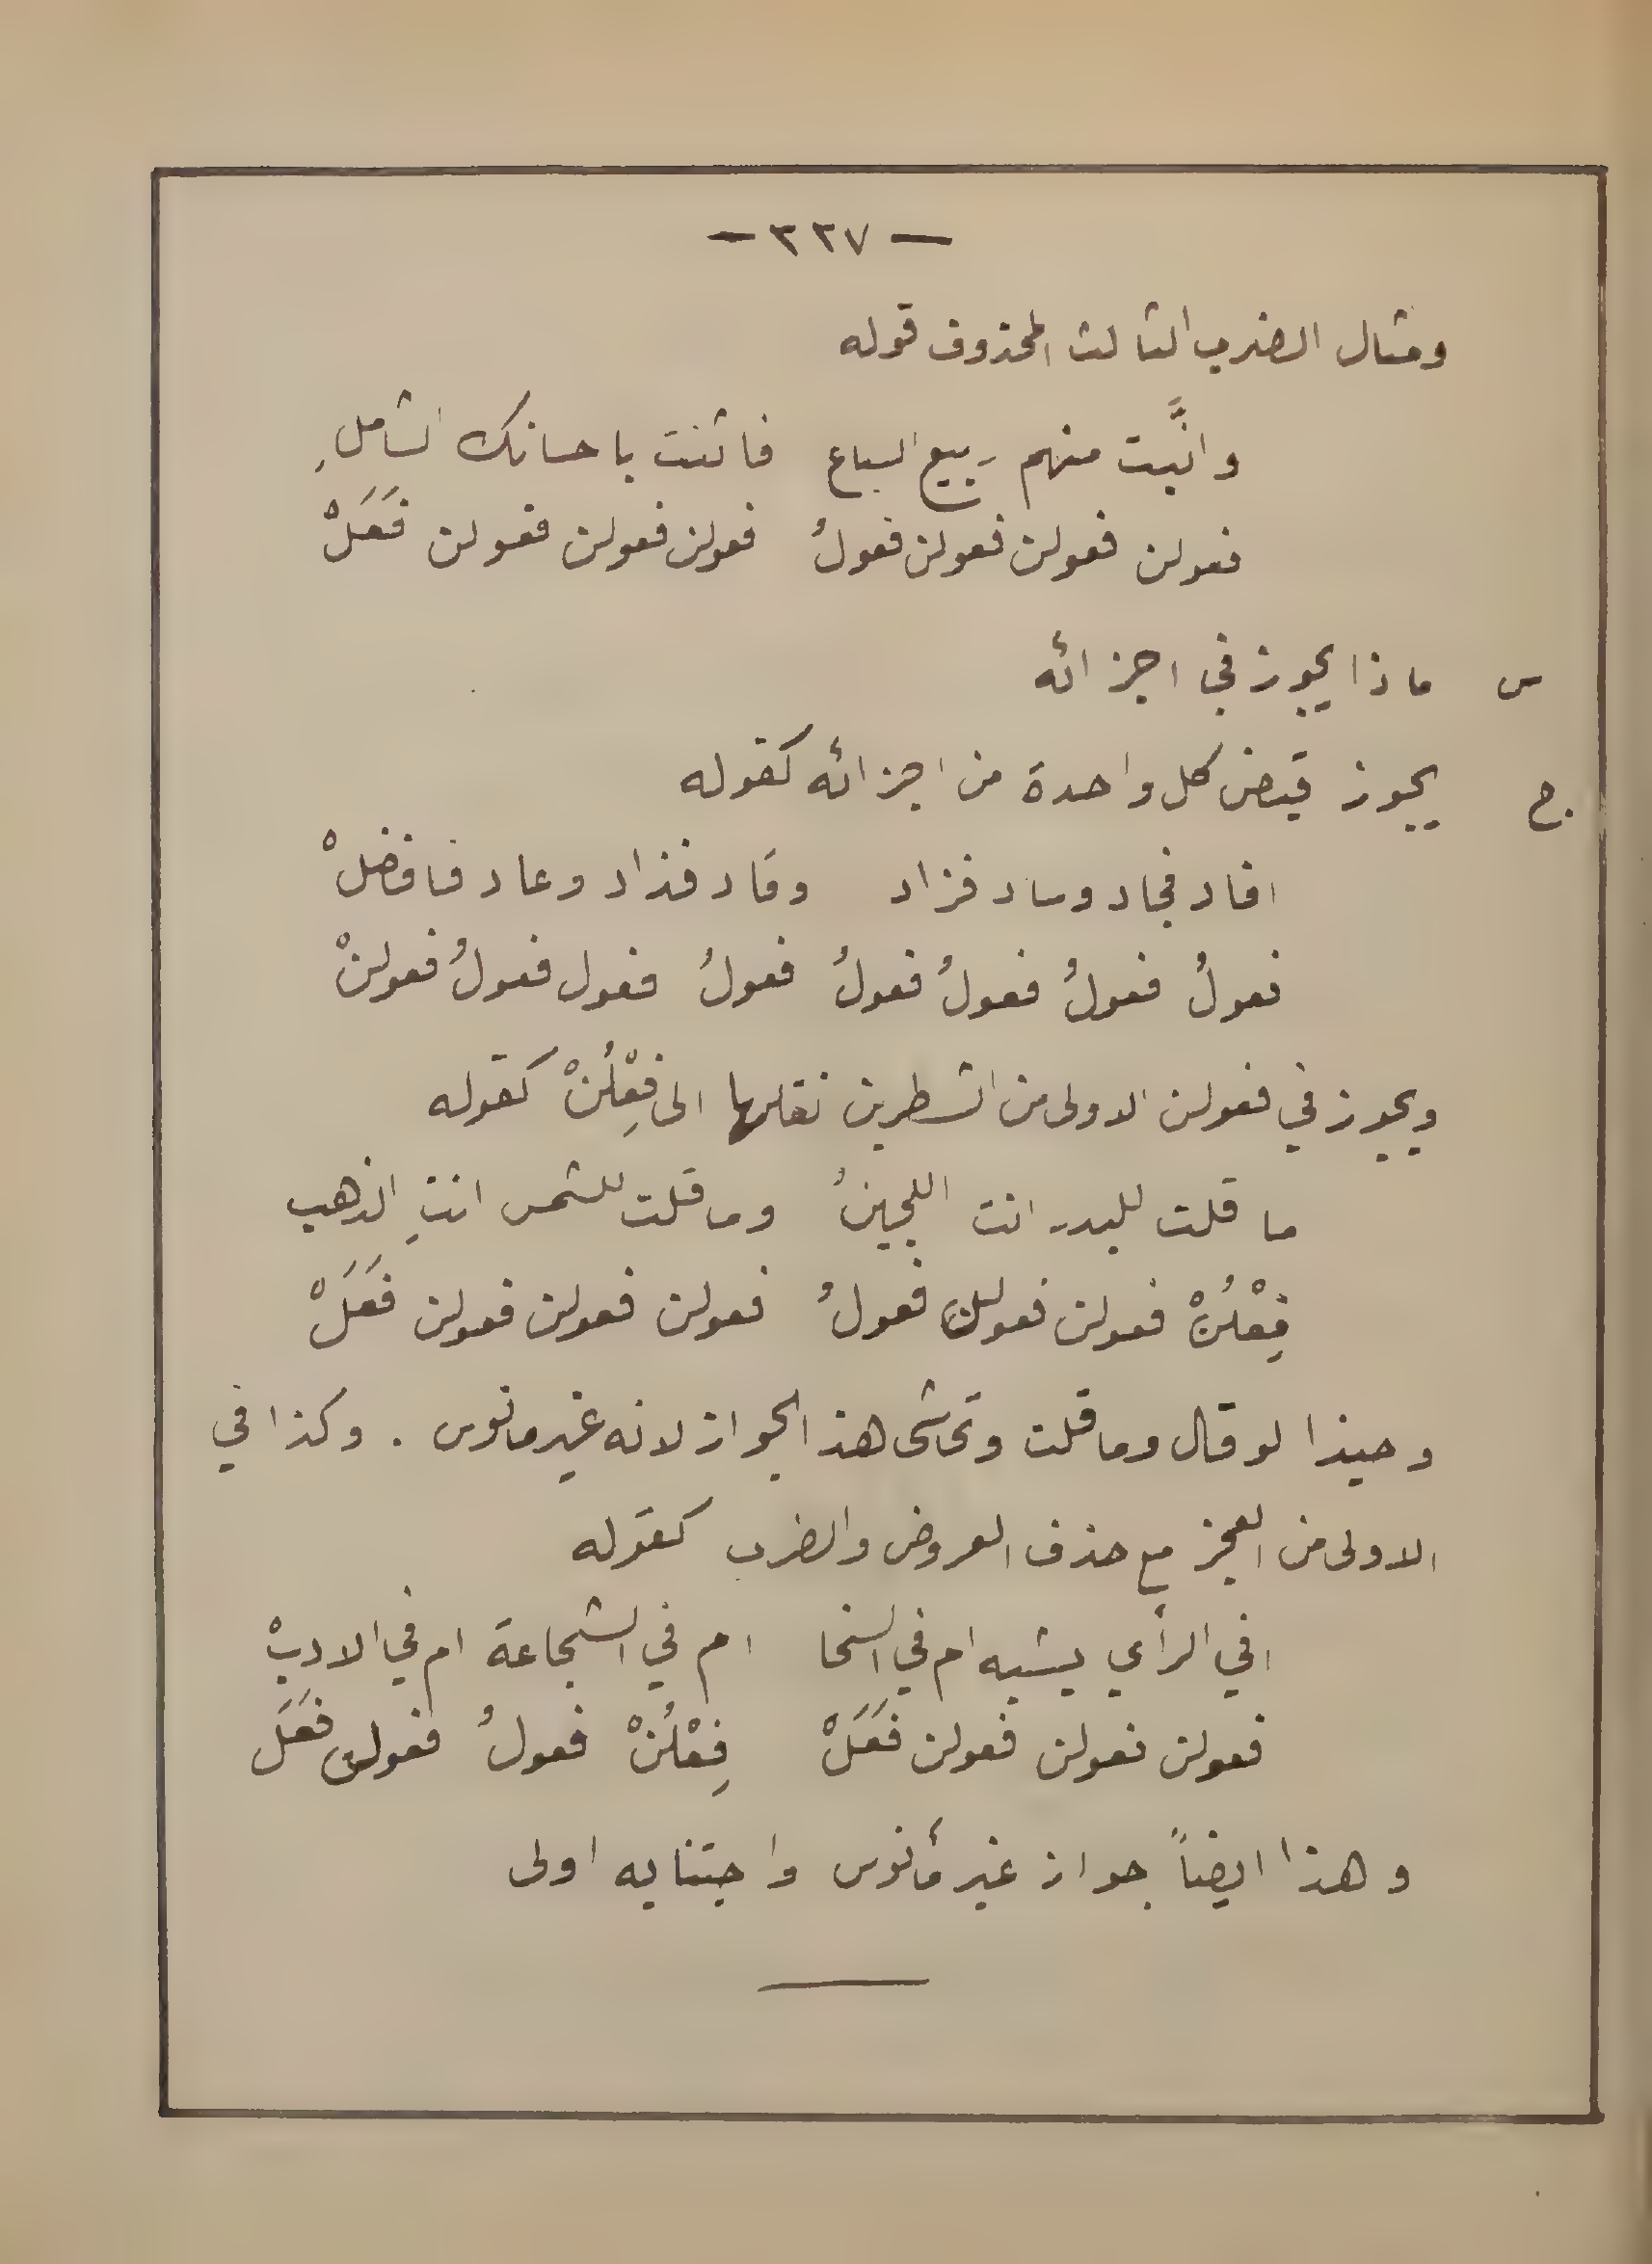 — ٣٢٧ —
ومثال الضرب الثالث المحذوف قوله
وانبَّت منهم ربيع السباع فاثنت باحسانك الشاملِ
فعولن فعولن فعولن فعولُ فعولن فعولن فعولن فَعَلْ
س ماذا يجوز في اجزائه
ج. يجوز قبض كل واحدة من اجزائه كقوله
افاد فجاد وساد فزاد وقاد فذاد وعاد فافضلْ
فعولُ فعولُ فعولُ فعولُ فعولُ فعول فعولُ فعولنْ
ويجوز في فعولن الاولى من الشطرين نقلها الى فِعْلُنْ كقوله
ما قلت للبدر انت اللجينُ وما قلت للشمس انتِ الذهب
فِعْلُنْ فعولن فعولن فعولُ فعولن فعولن فعولن فَعَلْ
وحبذا لو قال وما قلت وتحاشى هذا الجواز لانه غير مانوس . وكذا في
الاولى من العجز مع حذف العروض والضرب كقوله
افي الرأي يشبه ام في السخا ام في الشجاعة ام في الادبْ
فعولن فعولن فعولن فَعَلْ فِعْلُنْ فعولُ فعولن فَعَل
وهذا ايضاً جواز غير مأنوس واجتنابه اولى